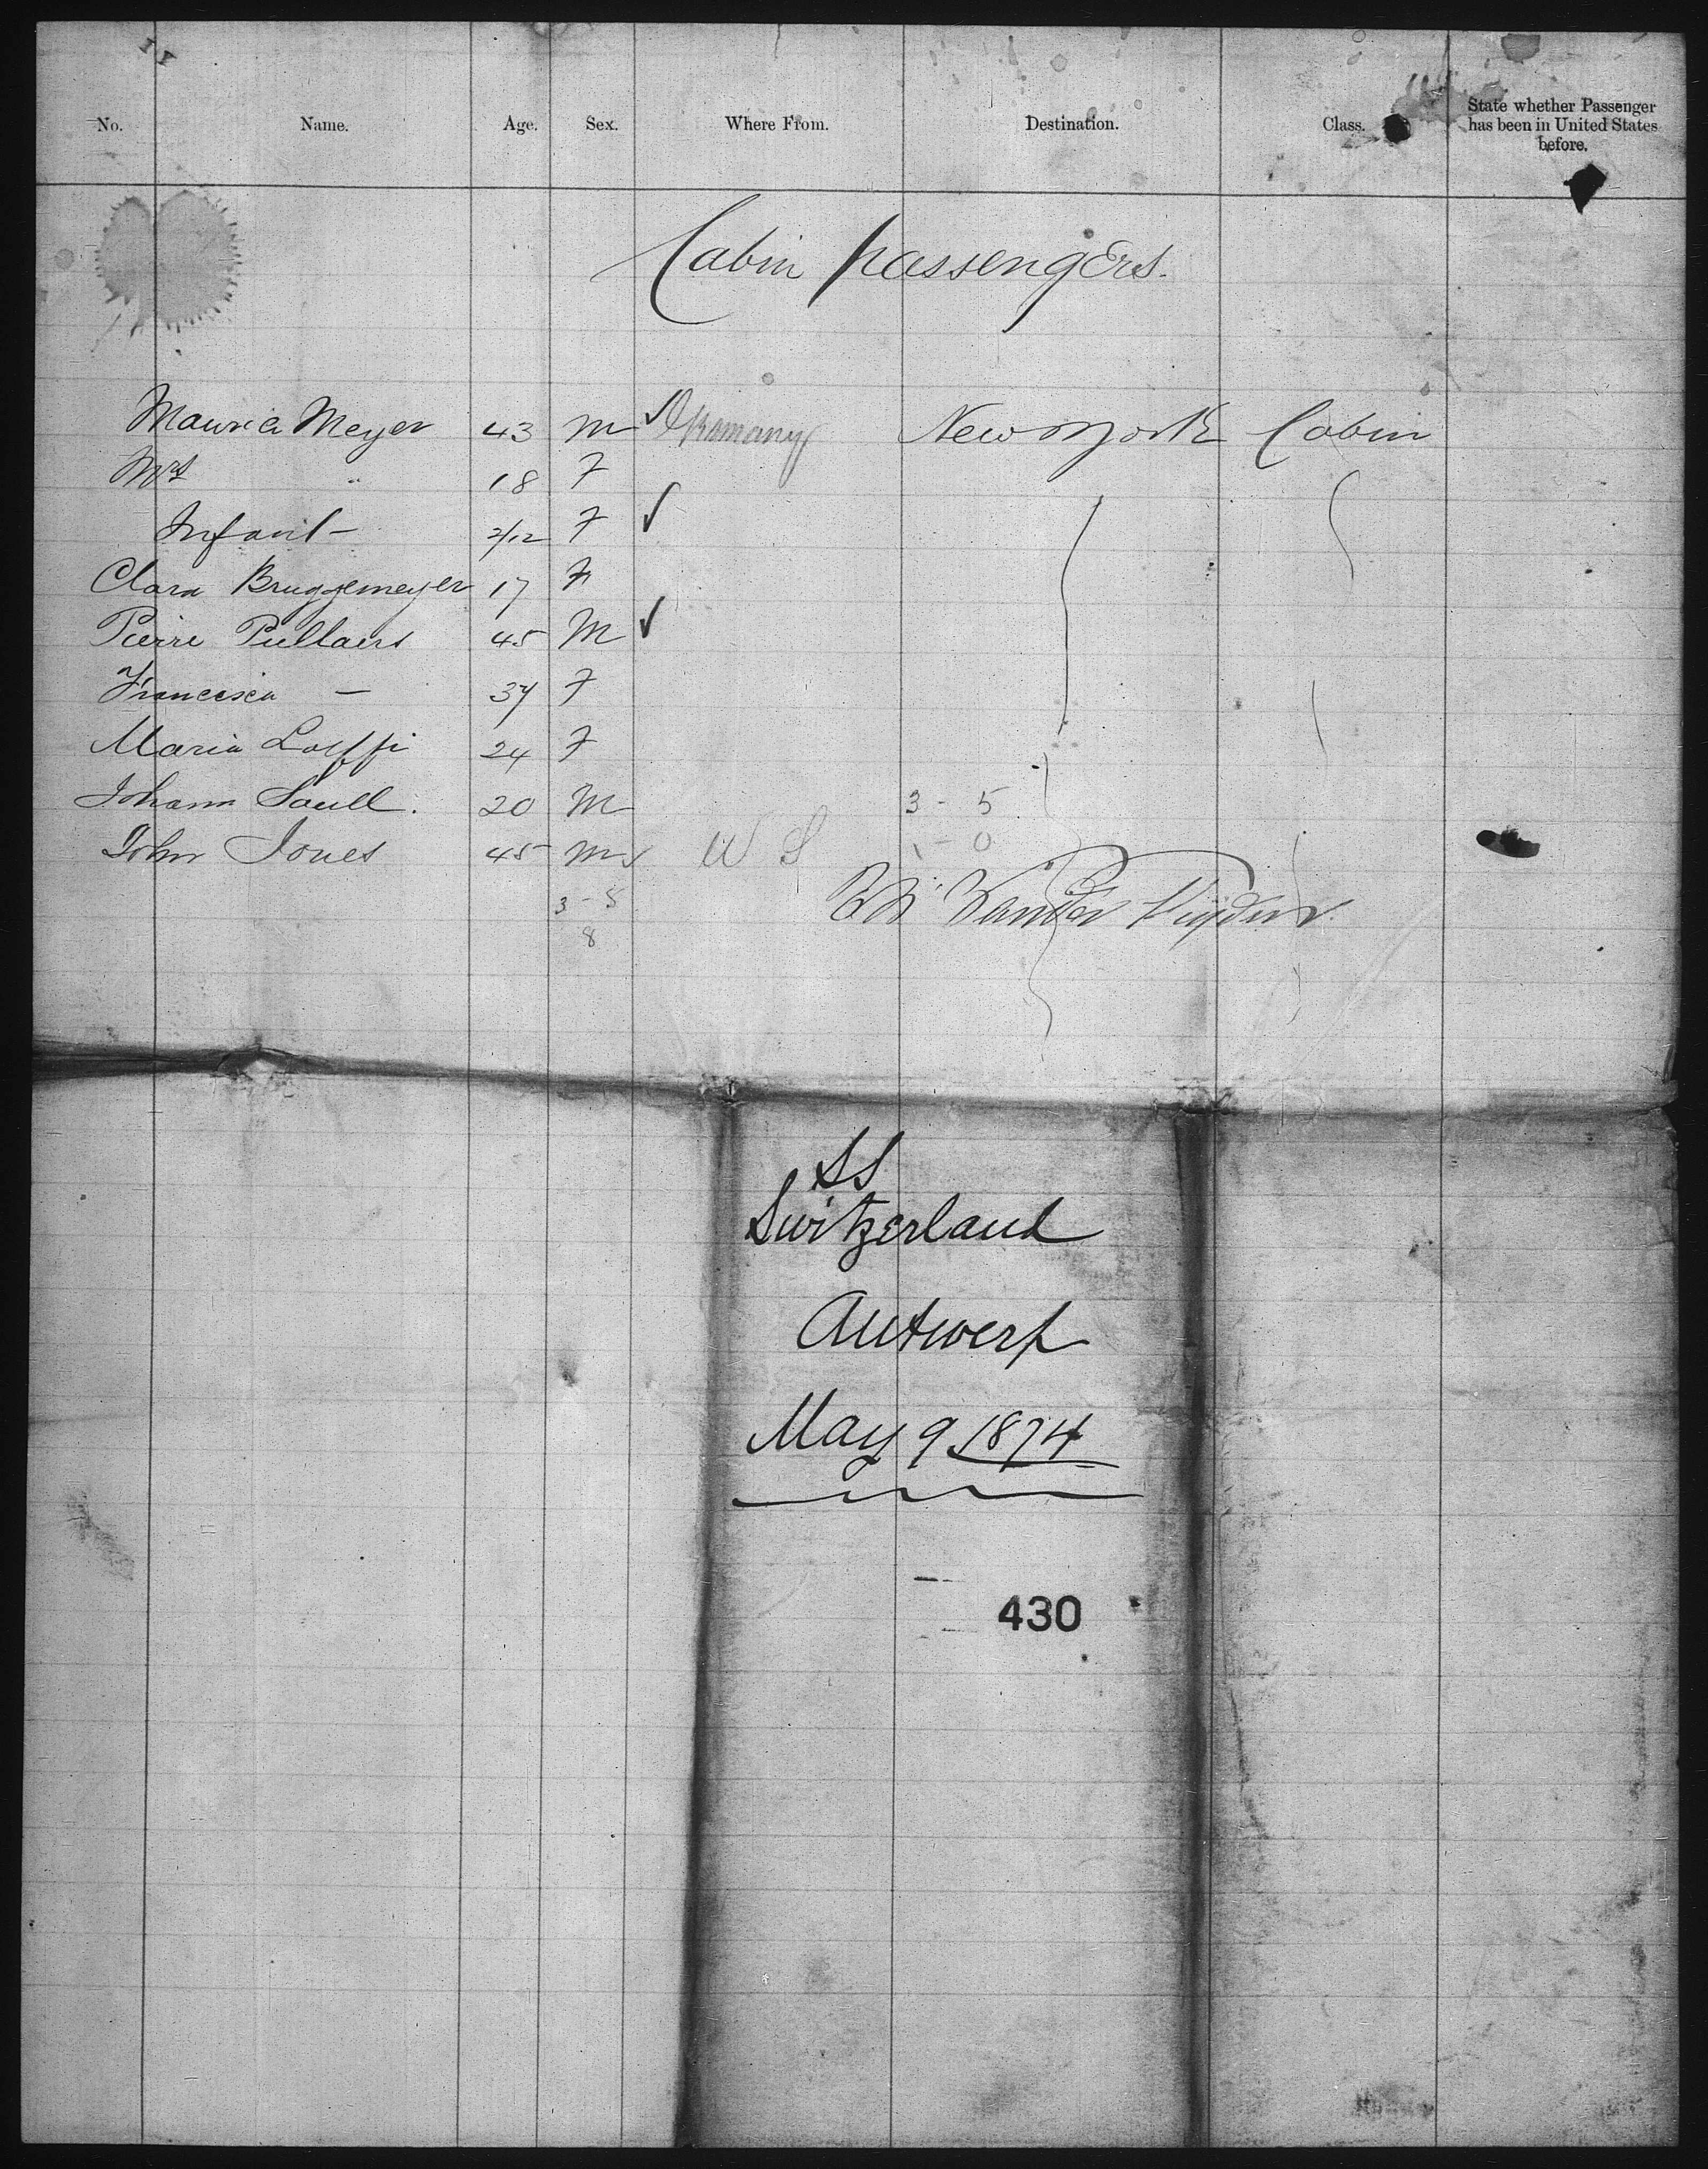 No. Name. Age. Sex. Where From. Destination. Class. State whether Passenger has been in United States before.
Cabin passengers.
Maurice Meyer 43 M Germany New York Cabin
Mrs " 18 F
Infant - 2/12 F
Clara Bruggemeyer 17 F
Pierre 45 M
Francesca - 37 F
Maria 24 F
Johann Saull. 20 M 3 - 5
John Jones 45 M W S 1 - 0
3 - 5
8
SS
Switzerland
Antwerp
May 9 1874
430